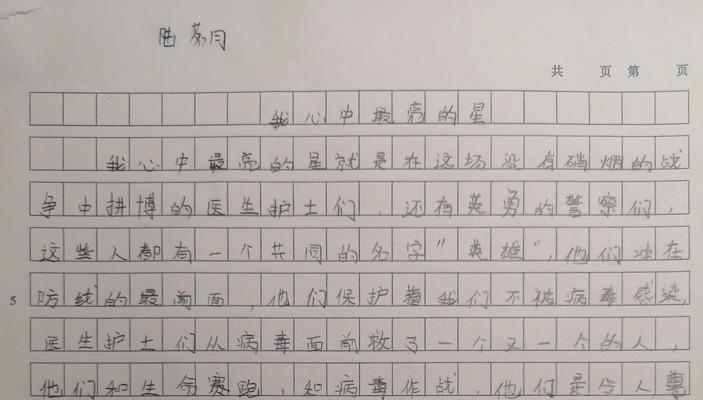 陆茗月
共 页 第 页
我心中最亮的星
我心中最亮的星就是在这场没有硝烟的战
争中拼博的医生护士们，还有英勇的警察们，
这些人都有一个共同的名字"英雄"，他们冲在
5 防线的最前面，他们保护着我们不被病毒感染，
医生护士们从病毒面前救了一个又一个的人，
他们和生命赛跑，和病毒作战，他们是令人尊